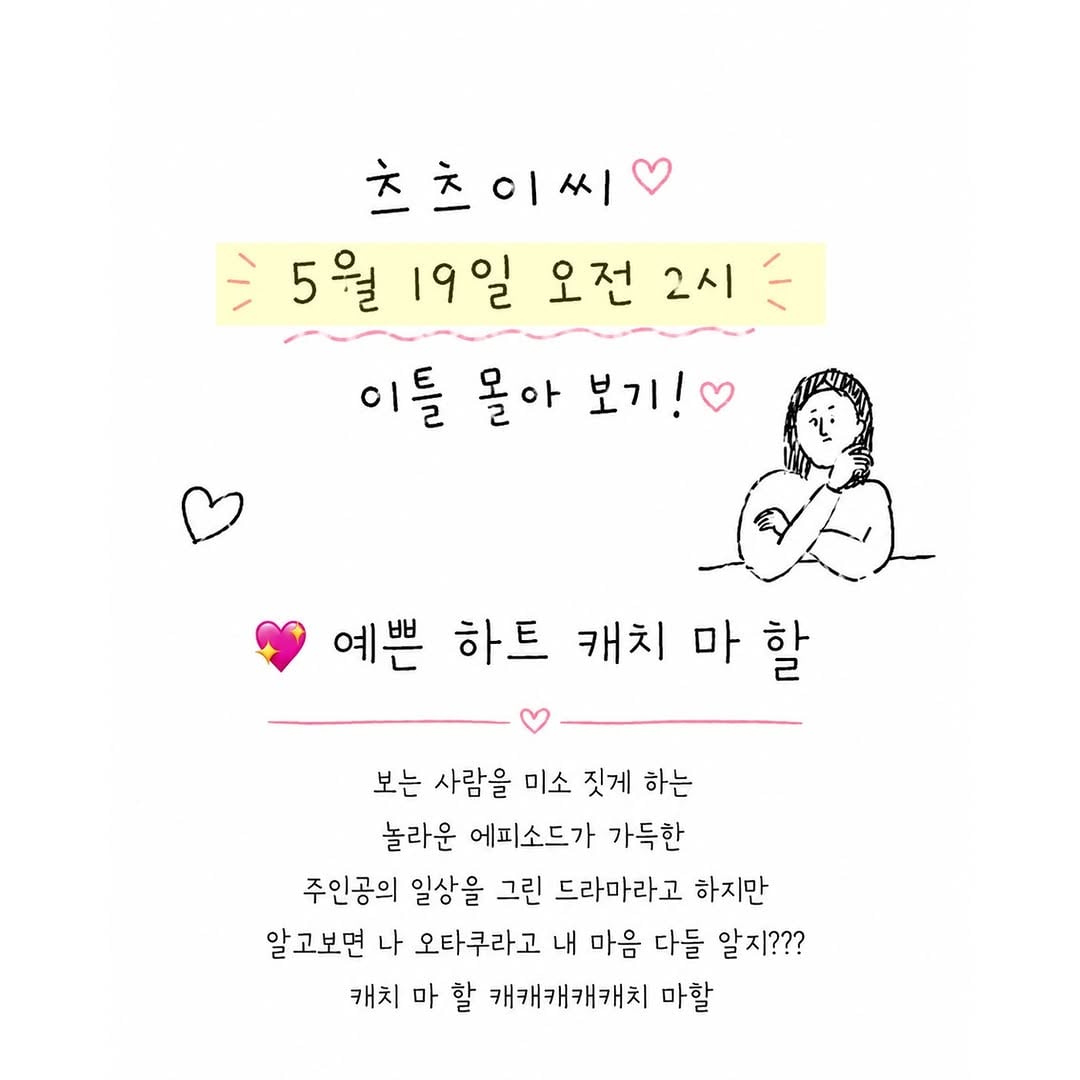 츠츠이씨
5월 19일 오전 2시
이틀 몰아 보기!
예쁜 하트 캐치 마 할
보는 사람을 미소 짓게 하는
놀라운 에피소드가 가득한
주인공의 일상을 그린 드라마라고 하지만
알고보면 나 오타쿠라고 내 마음 다들 알지???
캐치 마 할 캐캐캐캐캐치 마할